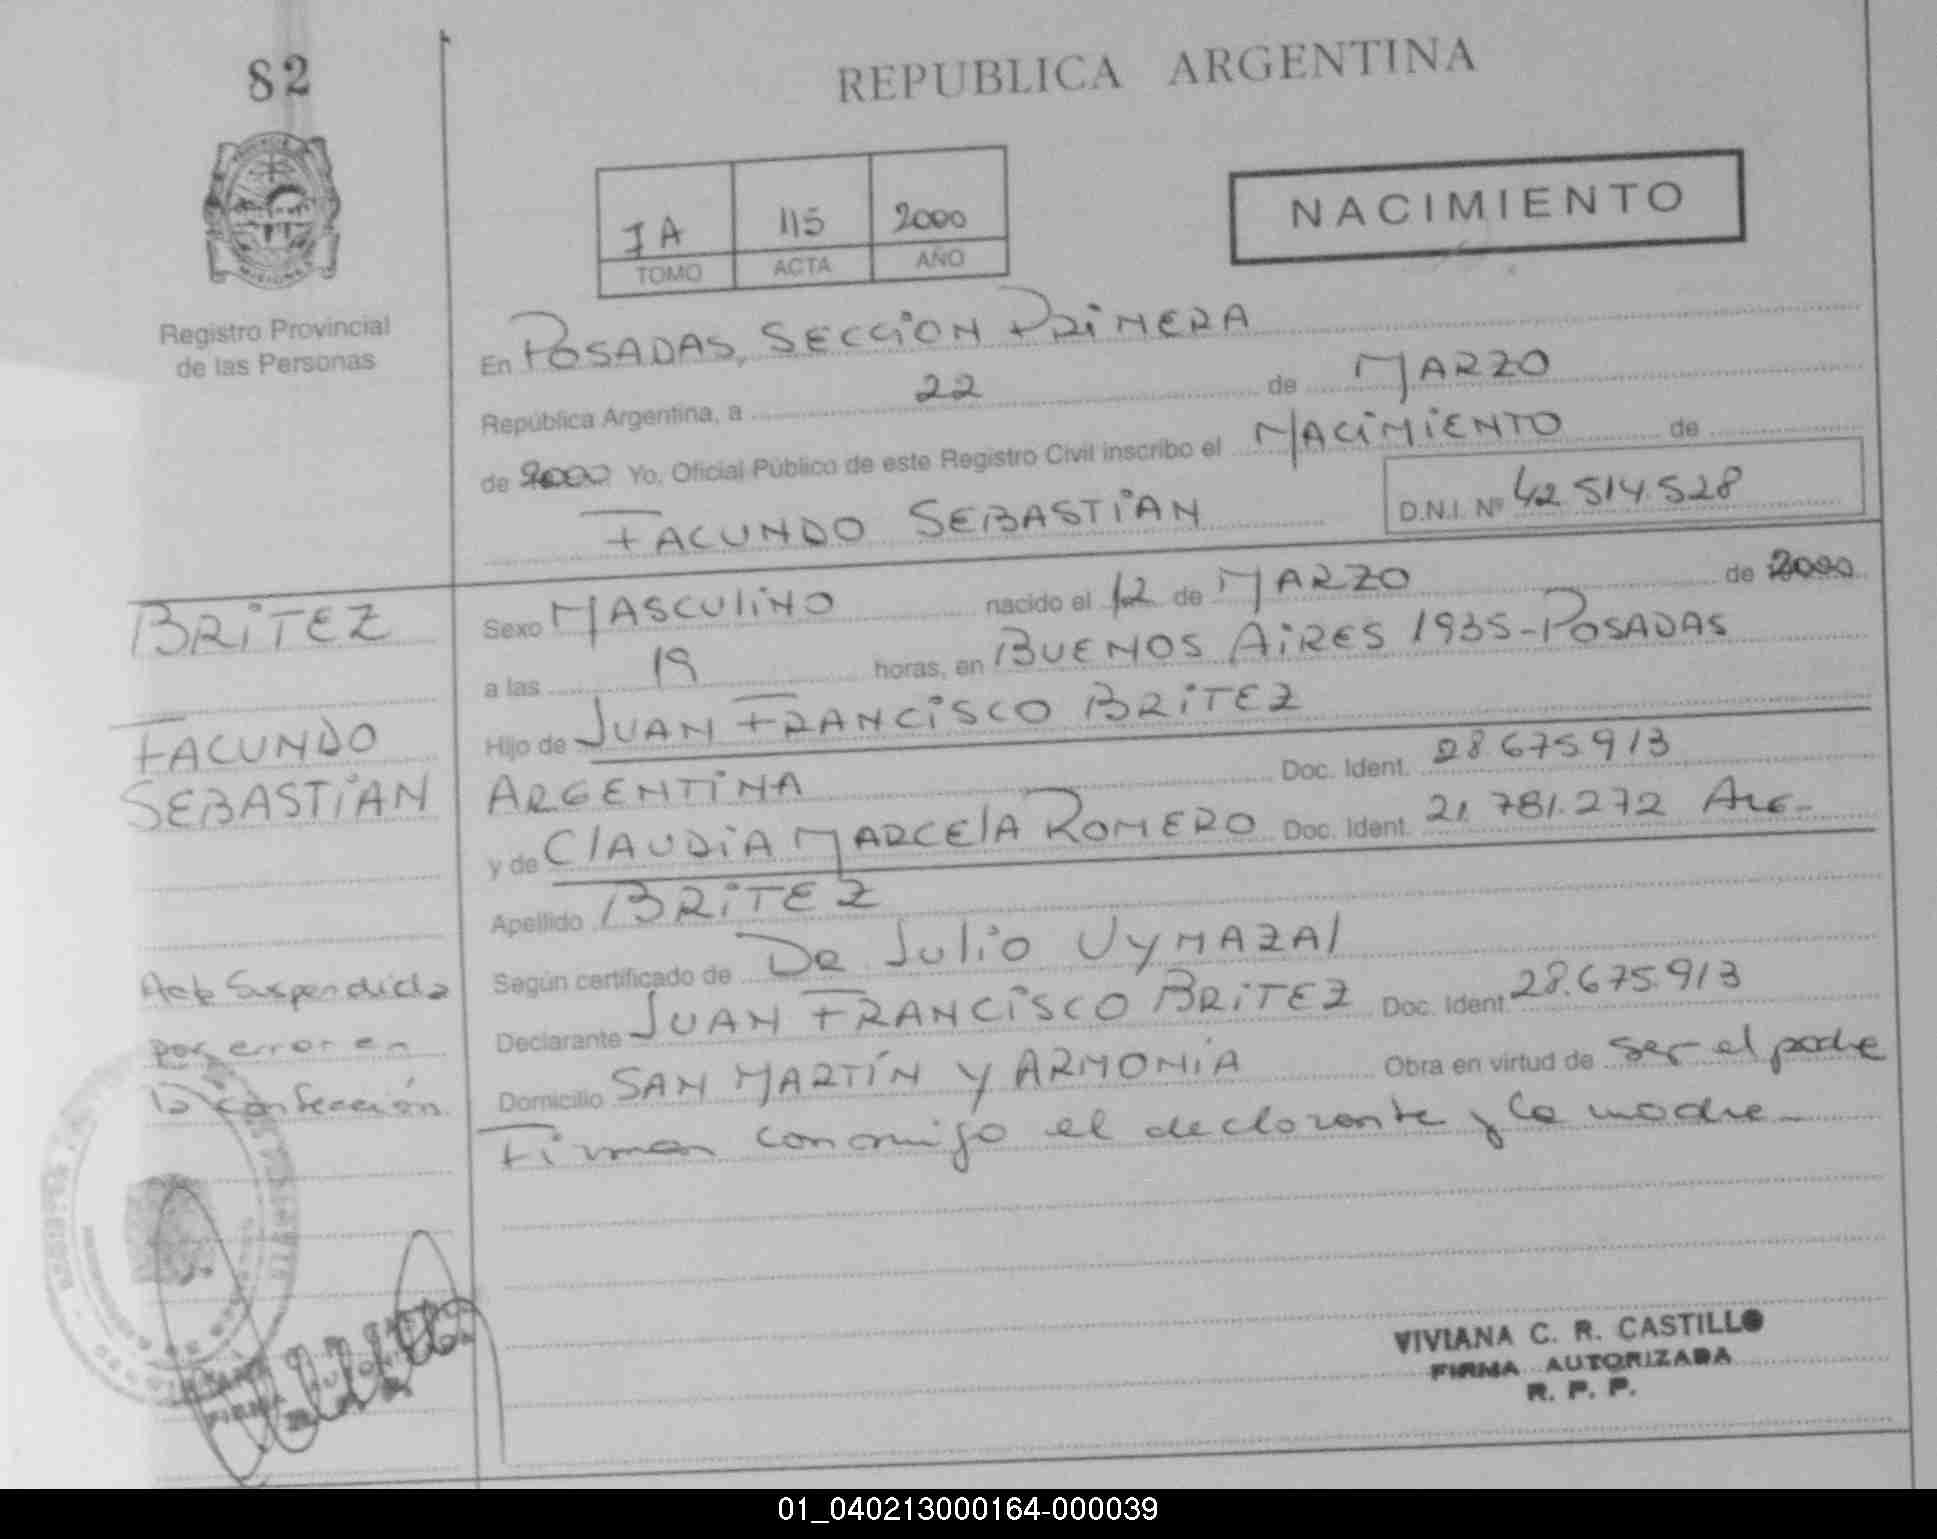 82
REPUBLICA ARGENTINA
IA 115 2000
TOMO ACTA AÑO
NACIMIENTO
Registro Provincial
de las Personas
En POSADAS, SECCION PRIMERA
República Argentina, a 22 de MARZO
de 2000 Yo, Oficial Público de este Registro Civil inscribo el NACIMIENTO de
FACUNDO SEBASTIAN D.N.I. Nº 42.514.528
BRITEZ
FACUNDO
SEBASTIAN
Acta Suspendida
por error en
la confección
Sexo MASCULINO nacido el 12 de MARZO de 2000
a las 19 horas, en BUENOS AIRES 1935-POSADAS
Hijo de JUAN FRANCISCO BRITEZ
ARGENTINA Doc. Ident. 28.675.913
y de CLAUDIA MARCELA ROMERO Doc. Ident. 21.781.272 ARG-
Apellido BRITEZ
Según certificado de DR JULIO UYMAZAL
Declarante JUAN FRANCISCO BRITEZ Doc. Ident. 28.675.913
Domicilio SAN MARTÍN Y ARMONIA Obra en virtud de ser el padre
Firman conmigo el declarante y la madre-
VIVIANA C. R. CASTILLO
FIRMA AUTORIZADA
R. P. P.
01_040213000164-000039